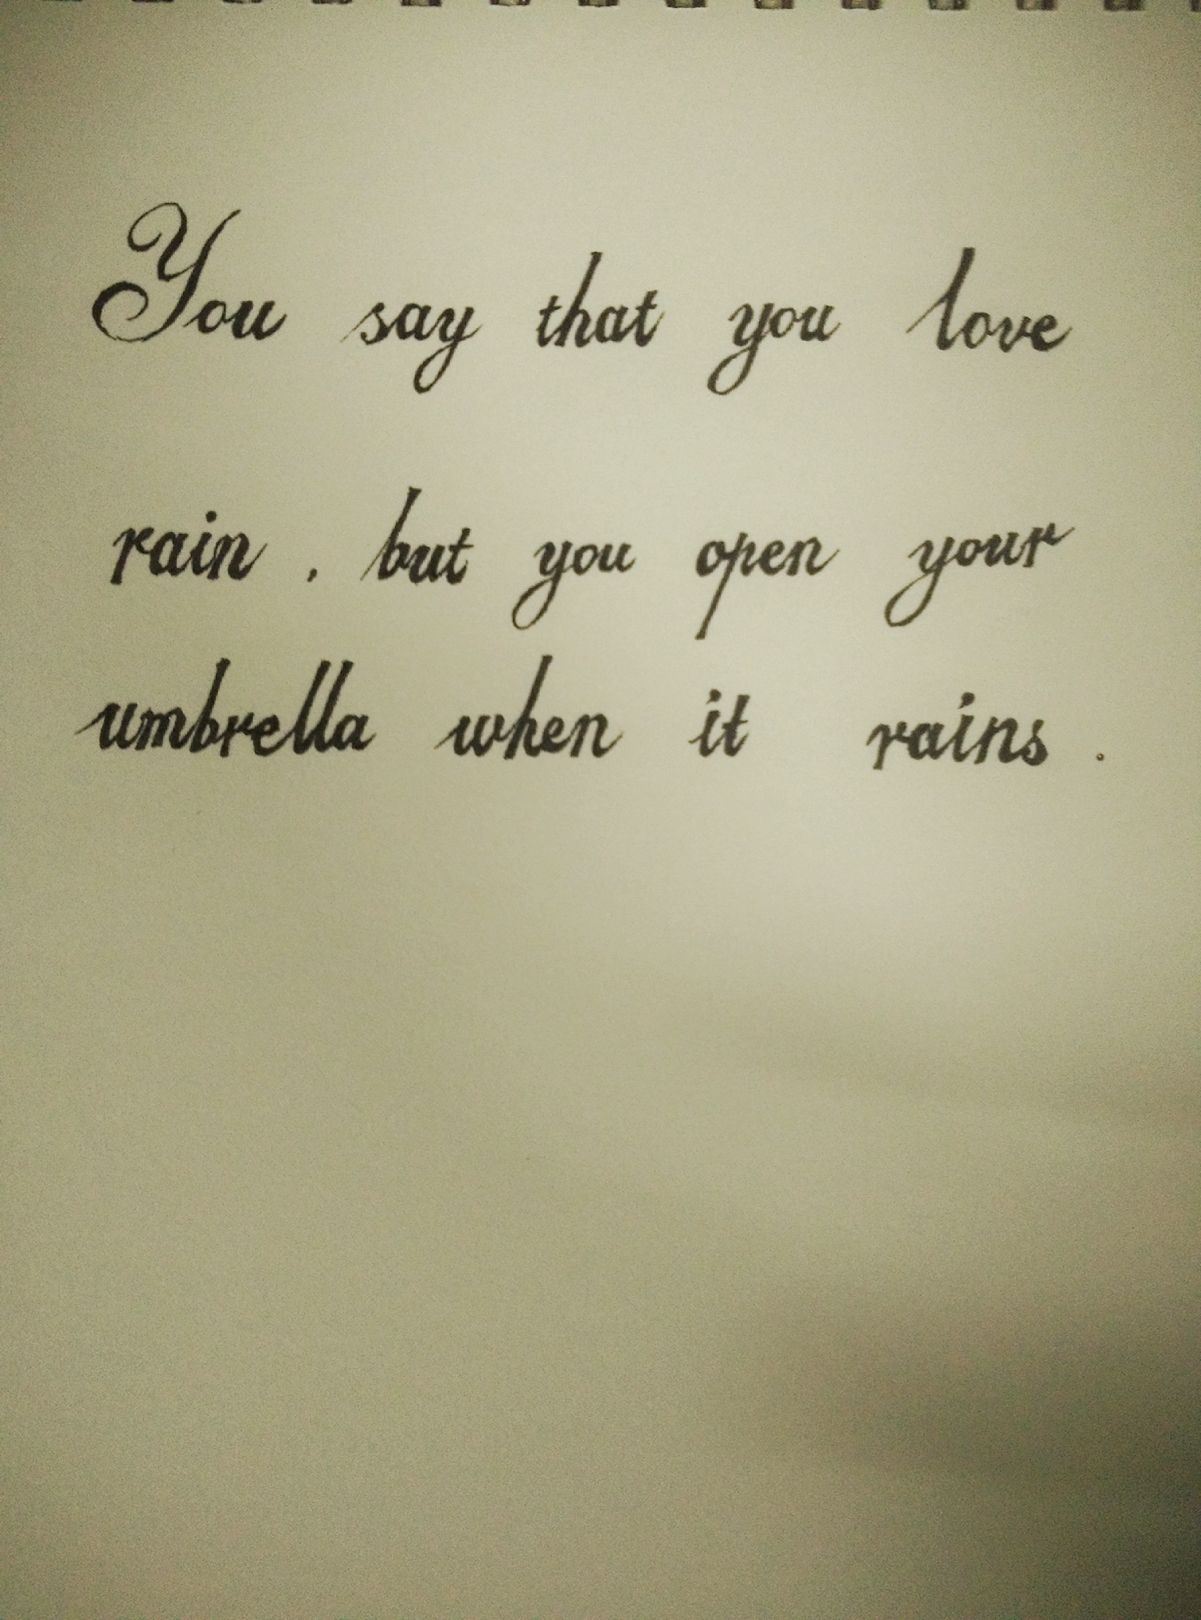 You say that you love
rain , but you open your
umbrella when it rains .